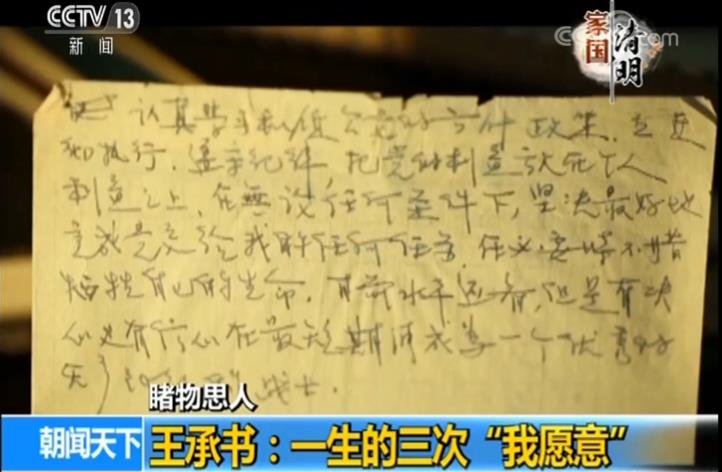 CCTV 13
新闻
家国
清明
CCTV.com
认真学习和 党的方针政策,
和执行,遵守纪律,把党的利益 个人
利益之上,在无论任何条件下,坚决最好地
完成党交给我的任何任务,任必要时不惜
牺牲自己的生命,目前水平还差,但是有决
心也有信心在最短期间成为一个优秀的
战士.
睹物思人
朝闻天下
王承书:一生的三次“我愿意”